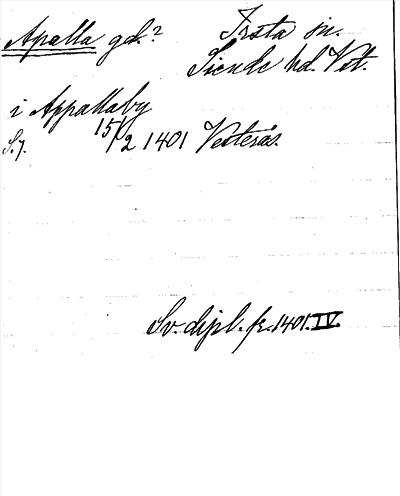 Apalla gd.? Irsta sn.
Siende hd. Vst.
i Appallaby
S. 7. 15/2 1401 Vesterås.
Sv. dipl. fr. 1401. IV.